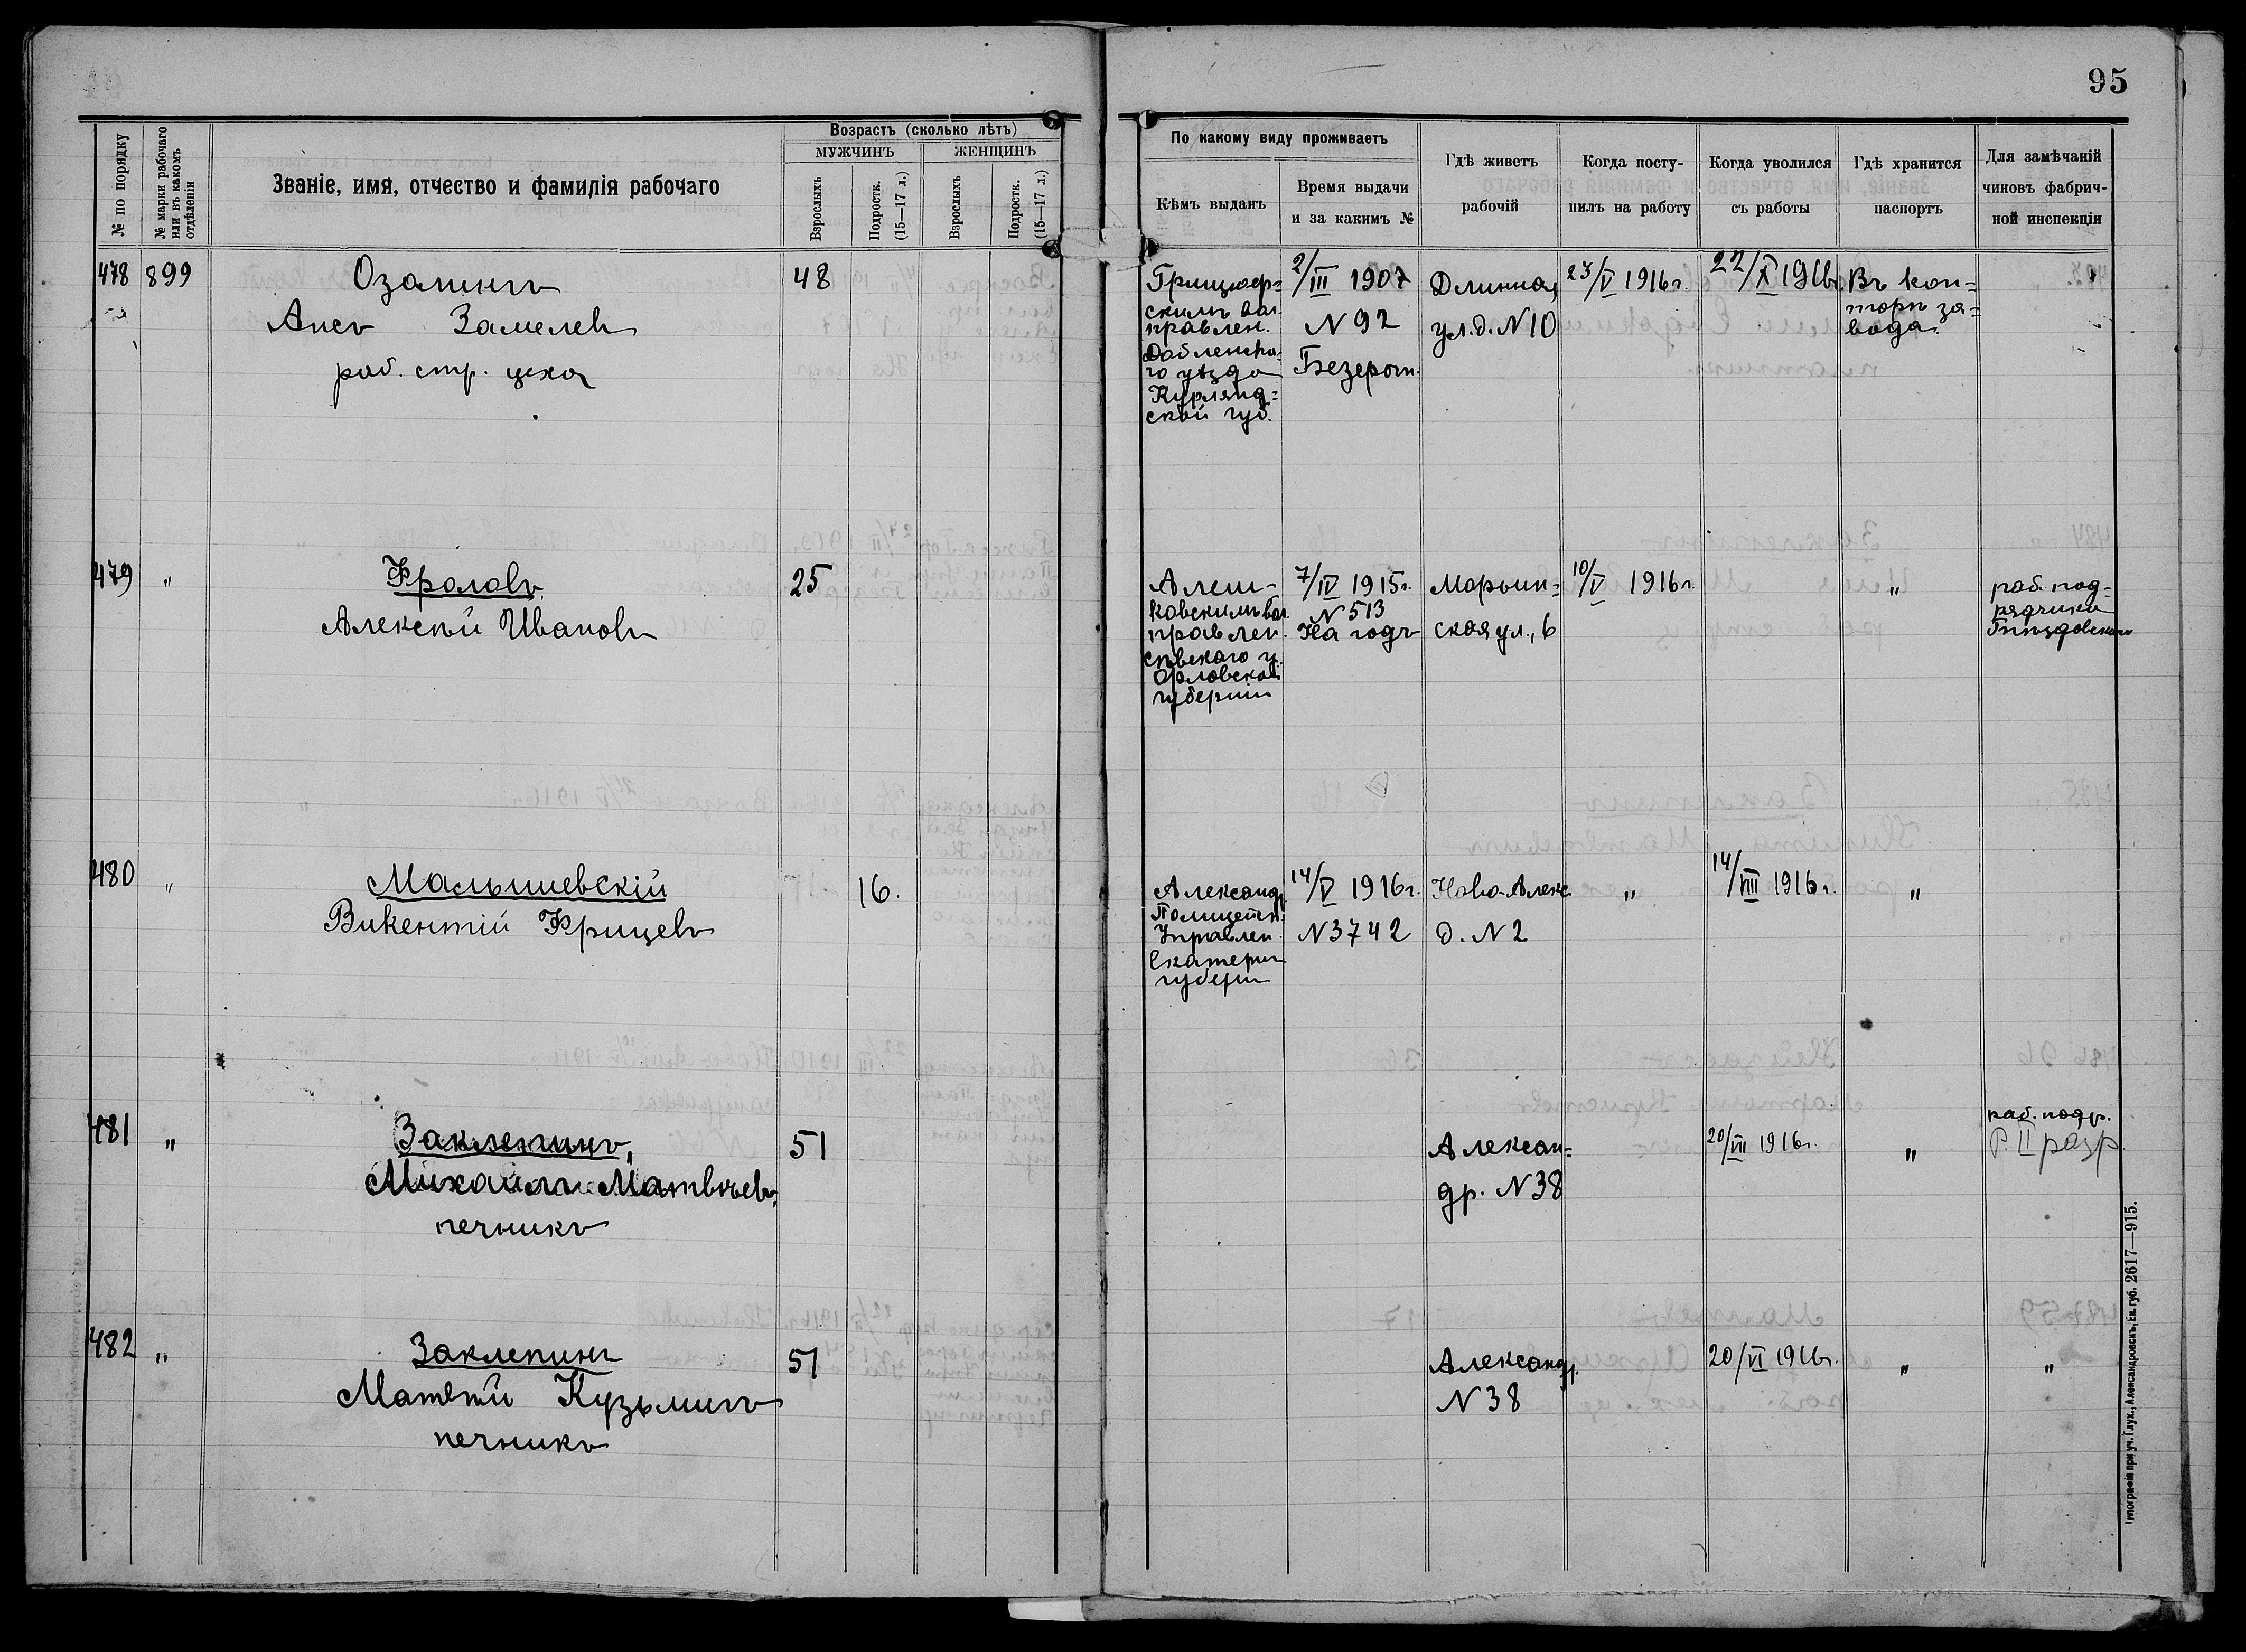 95
№ по порядку
№ марки рабочаго или въ какомъ отдѣленіи
Званіе, имя, отчество и фамилія рабочаго
Возрастъ (сколько лѣтъ)
МУЖЧИНЪ
ЖЕНЩИНЪ
Взрослыхъ
Подростк. (15—17 л.)
Взрослыхъ
Подростк. (15—17 л.)
По какому виду проживаетъ
Кѣмъ выданъ
Время выдачи
и за какимъ №
Гдѣ живетъ
рабочій
Когда посту-
пилъ на работу
Когда уволился
съ работы
Гдѣ хранится
паспортъ
Для замѣчаній
чиновъ фабрич-
ной инспекціи
478 899
Озолинъ
Ансъ
раб. стр. цеха
48
скимъ вол.
правлен.
го уѣзда
Курлянд=
ской губ.
2/III 1907
N 92
Безсрочн.
Длинная
ул. д. N 10
23/V 1916г.
22/X 1916г.
Въ кон=
торѣ за=
вода.
479 "
Фроловъ
Алексѣй Ивановъ
25
Алеш-
ковскимъ вол.
правлен.
Сѣвскаго у.
Орловской
губерніи
7/IV 1915г.
N 513
На годъ
Марьин=
ская ул., 6
10/V 1916г.
"
раб. под-
рядчика
Гнѣздовскаго
480 "
Малышевскій
Викентій Фрицевъ
16.
Александр.
Полицейск.
Управлен.
Екатерин
губерн
14/V 1916г.
N 3742
Ново-Алекс
д. N 2
"
14/VIII 1916г.
"
481 "
Заклепинъ
Михаилъ Матвѣевъ
печникъ
51
Алексан=
др. N 38
20/VII 1916г.
"
раб. подр.
Р. II разр.
482 "
Заклепинъ
Матвѣй Кузьминъ
печникъ
51
Александр.
N 38
20/VI 1916г.
"
"
Типографія при уч. Глух., Александровскъ, Ек. губ. 2617—915.